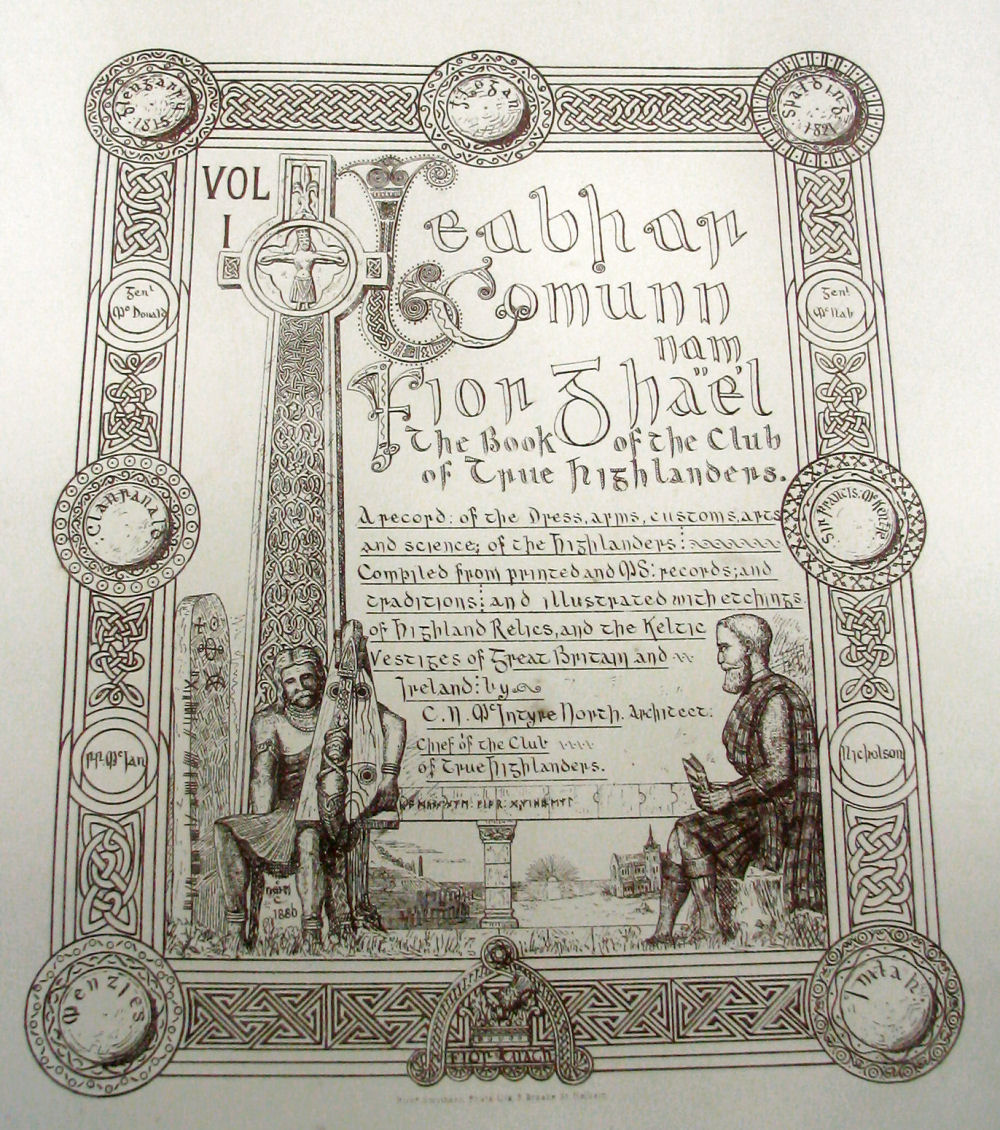 Glengarry 1815
Logan
Skibolrd 1821
VOL
I
Leabhar
Comunn
nam
Fior Ghäel
The Book of the Club
of True Highlanders.
A record: of the Dress, arms, customs, arts
and science; of the Highlanders:
Compiled from printed and MS: records; and
traditions; and illustrated with etchings
of Highland Relics, and the Keltic
Vestiges of Great Britain and
Ireland: by
C. N. McIntyre North. Architect:
Chief of the Club
of True Highlanders.
Genl
Mc Donald
Genl
McNab
Clanranald
Sir Francis: McKenzie
R.R. McIan
Nicholson
1880
Menzies